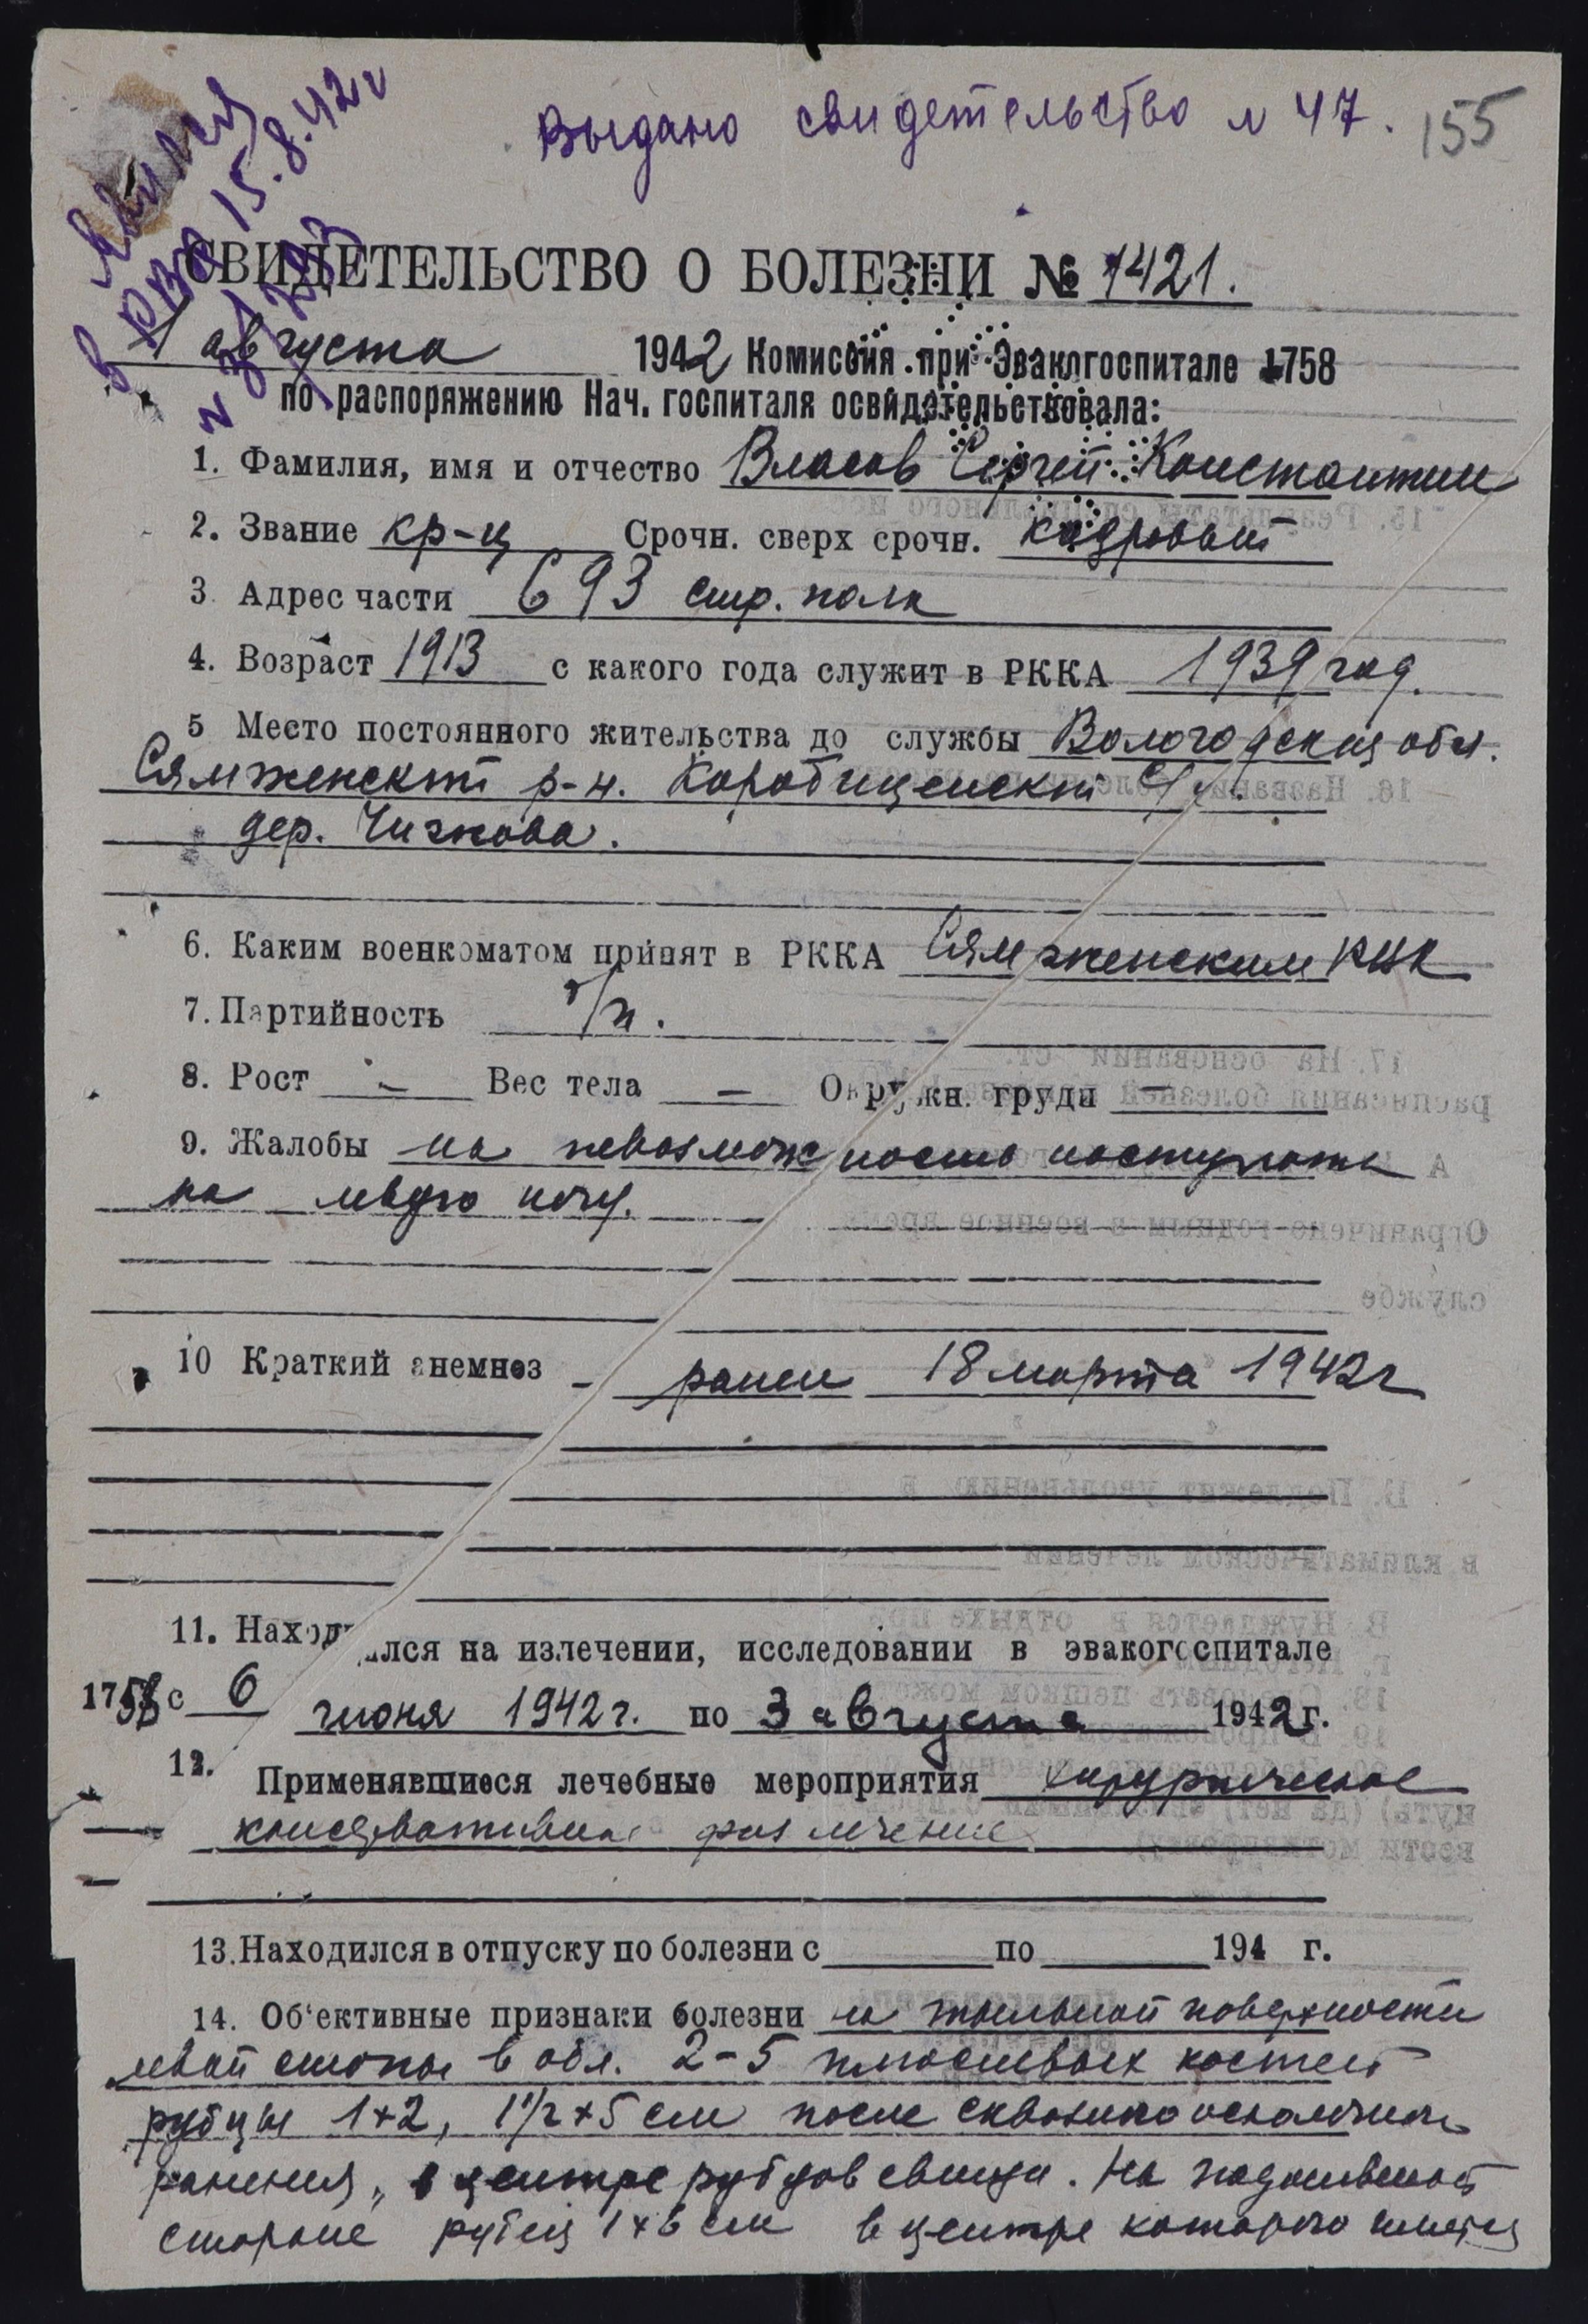 Выдано свидетельство № 47. 155
явился
в РВК 15.8.42 г
СВИДЕТЕЛЬСТВО О БОЛЕЗНИ № 1421.
1 августа 1942 Комиссия при Эвакогоспитале 1758
по распоряжению Нач. госпиталя освидетельствовала:
1. Фамилия, имя и отчество Власов Сергей Константин
2. Звание кр-ц Срочн. сверх срочн. кадровый
3. Адрес части 693 стр. полк
4. Возраст 1913 с какого года служит в РККА 1939 год.
5 Место постоянного жительства до службы Вологодская обл.
Сямженский р-н. Коробиценский с/с.
дер. Чижова.
6. Каким военкоматом принят в РККА Сямженским РВК
7. Партийность б/п.
8. Рост — Вес тела — Окружн. груди —
9. Жалобы на невозможность наступать
на левую ногу.
10 Краткий анемноз – ранен 18 марта 1942 г
11. Находился на излечении, исследовании в эвакогоспитале
1758 с 6 июня 1942 г. по 3 августа 1942 г.
12. Применявшиеся лечебные мероприятия хирургическое
консервативное физ лечение
13. Находился в отпуску по болезни с по 194 г.
14. Об'ективные признаки болезни на тыльной поверхности
левой стопы в обл. 2-5 плюсневых костей
рубцы 1+2, 1 1/2+5 см после сквозного осколочного
ранения, в центре рубцов свищи. На подошвенной
стороне рубец 1+6 см в центре которого имеется